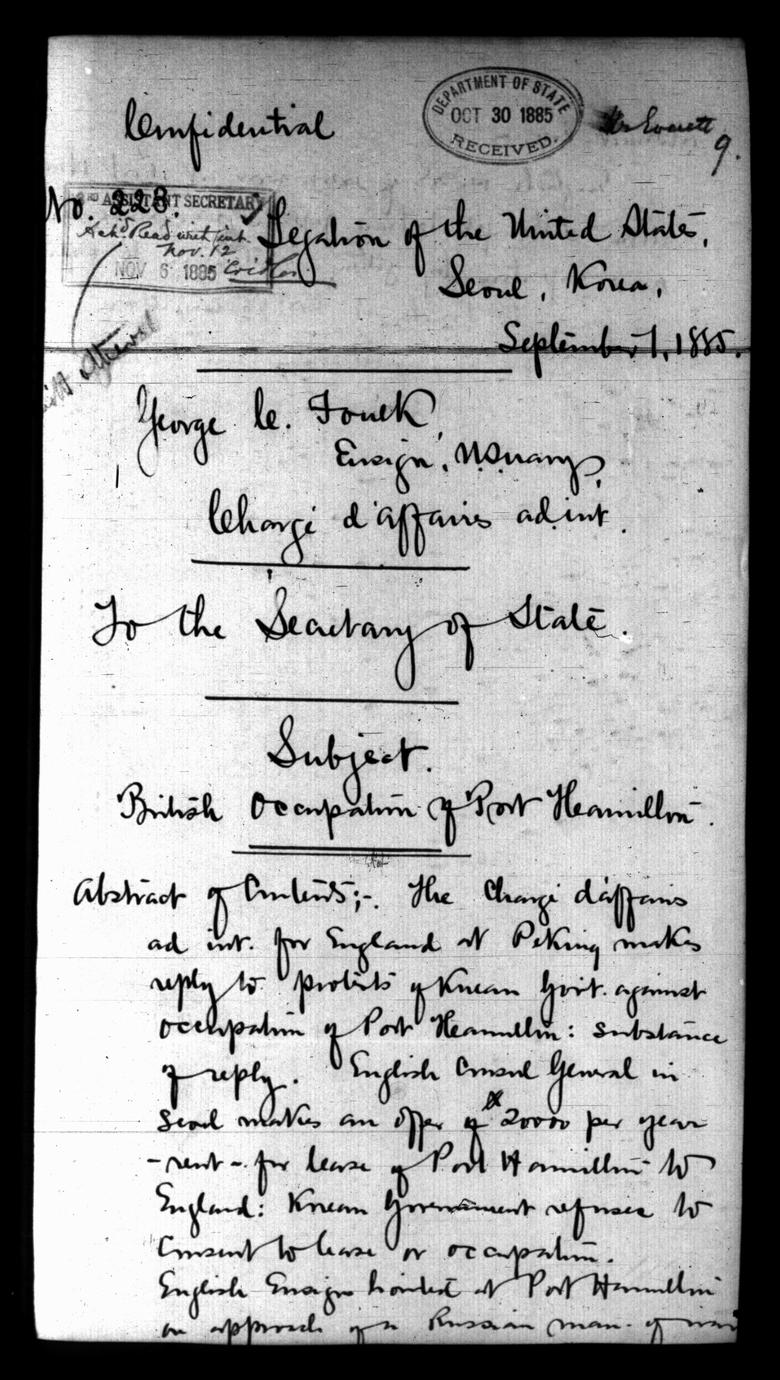 Confidential
DEPARTMENT OF STATE
OCT 30 1885
RECEIVED.
Mr Everett
9.
No. 223.
3RD ASSISTANT SECRETARY
Nov. 12
NOV 6 1885
Legation of the United States,
Seoul, Korea,
September 1, 1885.
George C. Foulk,
Ensign, U.S. Navy,
Chargé d'affaires ad int.
To the Secretary of State.
Subject.
British Occupation of Port Hamilton.
Abstract of Contents;-. The Chargé d'affaires
ad int. for England at Peking makes
reply to protests of Korean Govt. against
occupation of Port Hamilton: substance
of reply. English Consul General in
Seoul makes an offer of $20000 per year
- rent - for lease of Port Hamilton to
England: Korean Government refuses to
consent to lease or occupation.
English Ensign hoisted at Port Hamilton
on approach of a Russian man-of-war